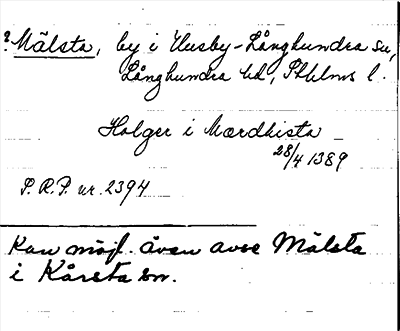 ? Mälsta, by i Husby-Långhundra sn,
Långhundra hd, Sthlms l.
Holger i Mærdhista
28/4 1389
P.R.P. nr. 2394
Kan möjl. även avse Mälsta
i Kårsta sn.